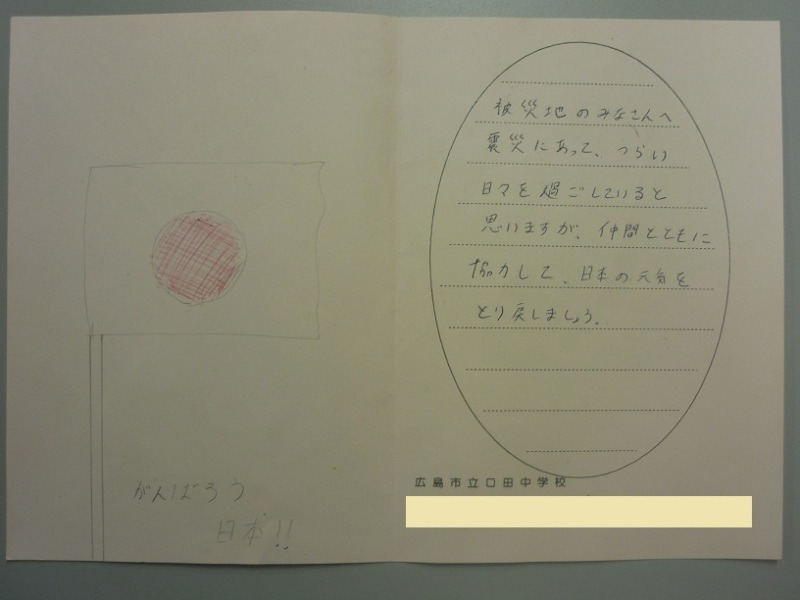 がんばろう
日本!!
被災地のみなさんへ
震災にあって、つらい
日々を過ごしていると
思いますが、仲間とともに
協力して、日本の元気を
とり戻しましょう。
広島市立口田中学校